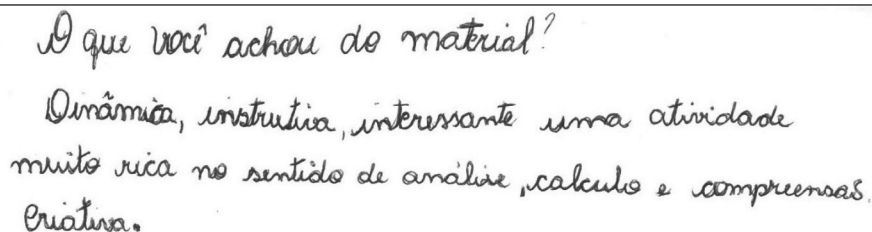 O que você achou do material?
Dinâmica, instrutiva, interessante uma atividade
muito rica no sentido de análise, calculo e compreensas.
Criativa.